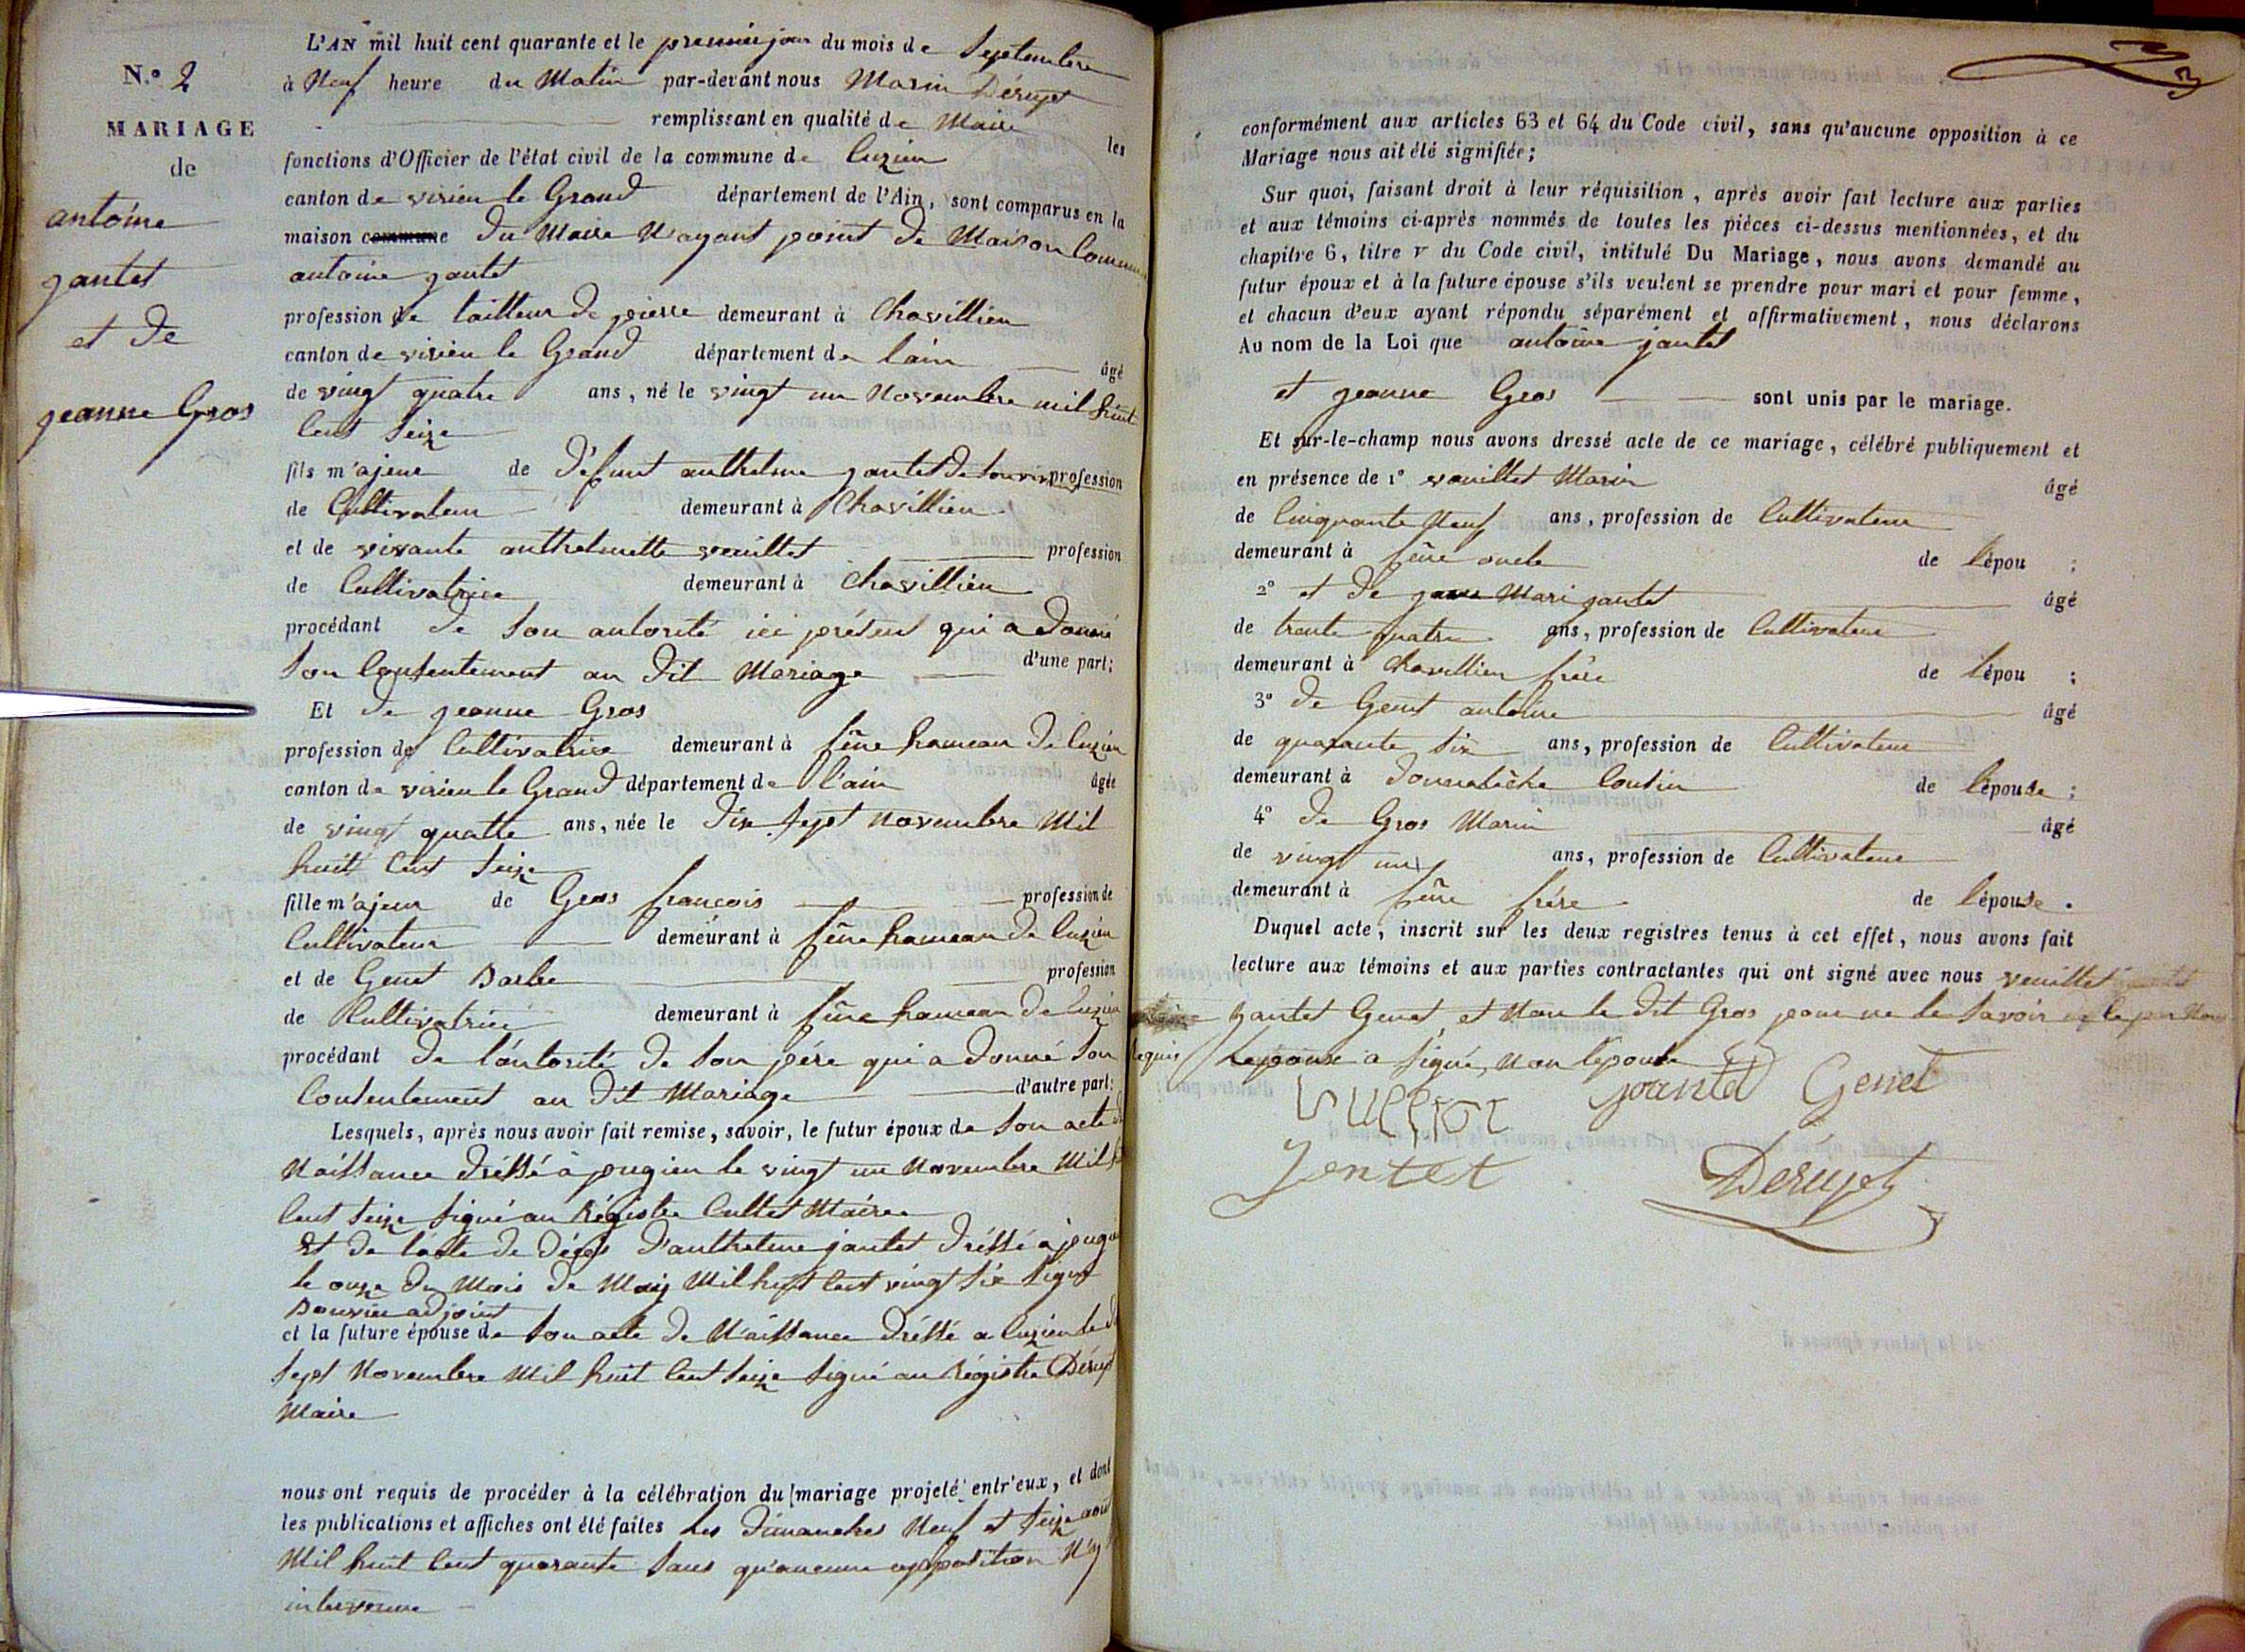 N.º 2
MARIAGE
de
antoine
jantet
et de
jeanne Gros
L'AN mil huit cent quarante et le premier jour du mois de Septembre
à Neuf heure du Matin par-devant nous Marin Dérupt
remplissant en qualité de Maire les
fonctions d'Officier de l'état civil de la commune de Cuzieu
canton de virieu le Grand département de l'Ain, sont comparus en la
maison commune du Maire N'ayant point de Maison Commune
antoine jantet
profession de tailleur de pierre demeurant à Chavillieu
canton de virieu le Grand département de lain âgé
de vingt quatre ans, né le vingt un Novembre mil huit
Cent Seize
fils m'ajeur de Défunt anthelme jantet de Son vivant profession
de Cultivateur demeurant à Chavillieu
et de vivante anthelmette vuillet profession
de Cultivatrice demeurant à Chavillieu
procédant de Son autorité ici présent qui a Donné
Son Consentement au Dit Mariage d'une part;
Et de jeanne Gros
profession de Cultivatrice demeurant à hameau de Cuzieu
canton de virieu le Grand département de l'ain âgée
de vingt quatre ans, née le Dix Sept Novembre Mil
huit Cent Seize
fille m'ajeur de Gros francois profession de
Cultivateur demeurant à hameau de Cuzieu
et de Genet Barbe profession
de Cultivatrice demeurant à hameau de Cuzieu
procédant de l'autorité de Son pére qui a Donné Son
Consentement au Dit Mariage d'autre part;
Lesquels, après nous avoir fait remise, savoir, le futur époux de Son acte de
Naissance Dréssé à pugieu le vingt un Novembre Mil
Cent Seize Signé au Régistre Cullet Maire
Et de l'acte de Décés D'anthelme jantet Dréssé à pugieu
le onze du Mois de May Mil huit Cent vingt Six Signé
Bouvier adjoint
et la future épouse de Son acte de Naissance Dréssé a Cuzieu le
Sept Novembre Mil huit Cent Seize Signé au Régistre Dérupt
Maire
nous ont requis de procéder à la célébration du mariage projeté entr'eux, et dont
les publications et affiches ont été faites Les Dimanches Neuf et Seize aout
Mil huit Cent quarante Sans qu'aucune opposition N'y
intervenue
conformément aux articles 63 et 64 du Code civil, sans qu'aucune opposition à ce
Mariage nous ait été signifiée;
Sur quoi, faisant droit à leur réquisition, après avoir fait lecture aux parties
et aux témoins ci-après nommés de toutes les pièces ci-dessus mentionnées, et du
chapitre 6, titre v du Code civil, intitulé Du Mariage, nous avons demandé au
futur époux et à la future épouse s'ils veulent se prendre pour mari et pour femme,
et chacun d'eux ayant répondu séparément et affirmativement, nous déclarons
Au nom de la Loi que antoine jantet
et jeanne Gros sont unis par le mariage.
Et sur-le-champ nous avons dressé acte de ce mariage, célébré publiquement et
en présence de 1º vuillet Marin âgé
de Cinquante Neuf ans, profession de Cultivateur
demeurant à oncle de lépou ;
2º et de Mari jantet âgé
de trente quatre ans, profession de Cultivateur
demeurant à Chavillieu frère de lépou ;
3º de Genet antoine âgé
de quarante Six ans, profession de Cultivateur
demeurant à Cousin de lépouse ;
4º de Gros Marin âgé
de vingt un ans, profession de Cultivateur
demeurant à frére de lépouse.
Duquel acte, inscrit sur les deux registres tenus à cet effet, nous avons fait
lecture aux témoins et aux parties contractantes qui ont signé avec nous vuillet
jantet Genet et Non le Dit Gros pour ne le Savoir
requis Lepoux a Signé, Non l'épouse
vuLLiot jantet Genet
Jentet Derupt